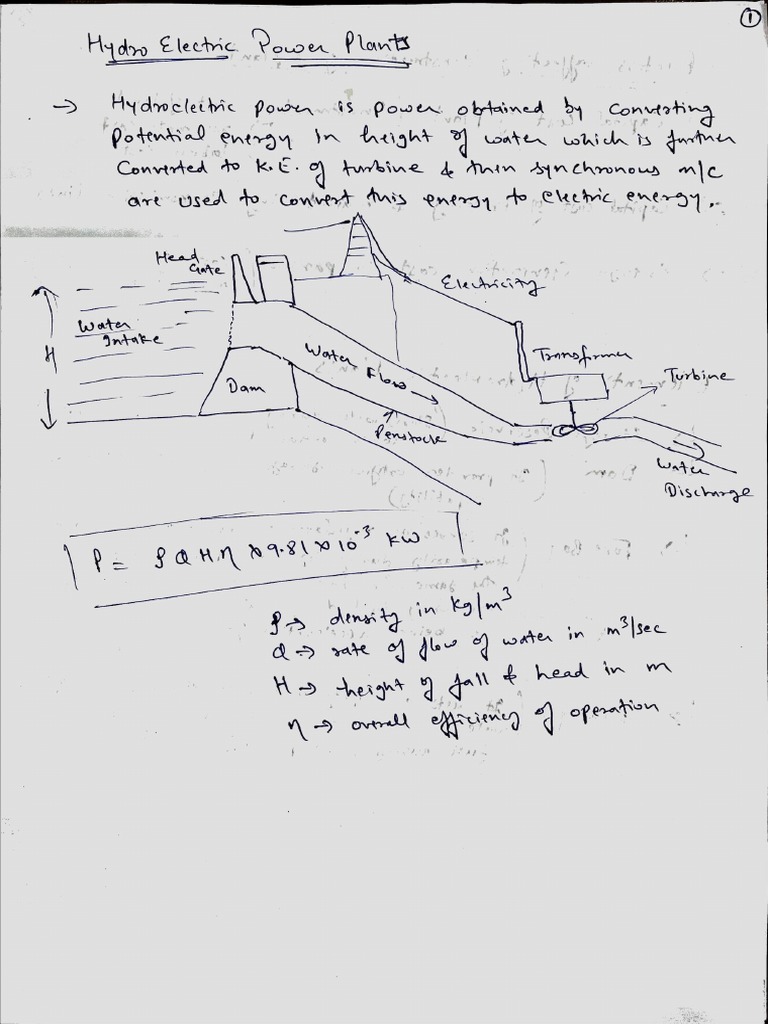 ①
Hydro Electric Power Plants
→ Hydroelectric power is power obtained by converting
Potential energy in height of water which is further
Converted to K.E. of turbine & then synchronous m/c
are used to convert this energy to electric energy.
Head
Gate
Electricity
Water
Intake
H
Water Flow
Transformer
Turbine
Dam
Penstock
Water
Discharge
P = ρ Q H η × 9.81 × 10⁻³ kW
ρ → density in kg/m³
Q → rate of flow of water in m³/sec
H → height of fall & head in m
η → overall efficiency of operation